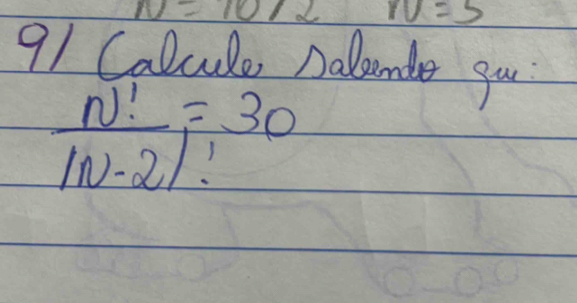 N = 10/2 N = 5
9/ Calcule sabendo que:
N! = 30
(N-2)!